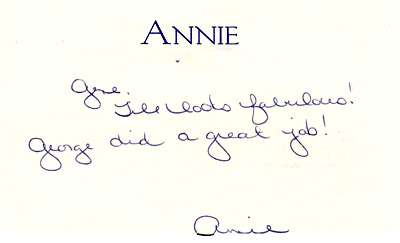 ANNIE
looks fabulous!
George did a great job!
Annie